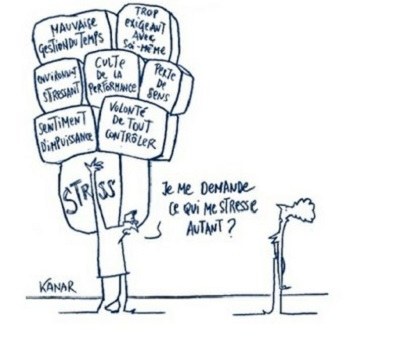 MAUVAISE
GESTION DU TEMPS
TROP
EXIGEANT
AVEC
SOI-MÊME
ENVIRONNT
STRESSANT
CULTE
DE LA
PERFORMANCE
PERTE
DE
SENS
SENTIMENT
D'IMPUISSANCE
VOLONTÉ
DE TOUT
CONTRÔLER
STRESS
JE ME DEMANDE
CE QUI ME STRESSE
AUTANT ?
KANAR